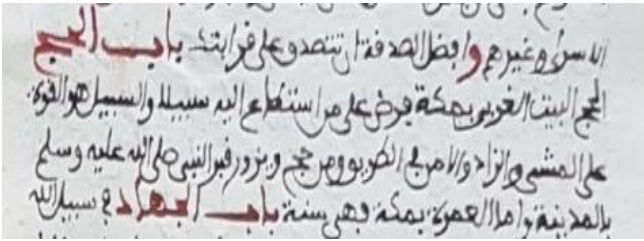 الاسراء وغيرهم وافضل الصدفة ان تتصدو على فرابتك باب الحج
الحج البيت الغربي بمكة فرض على من استطاع اليه سبيلا والسبيل هو الفوة
على المشي والزاد والامن في الطريق ومن حج ويزور فبر النبي صلى الله عليه وسلم
بالمدينة واما العمرة بمكة فهي سنة باب الجهاد في سبيل الله